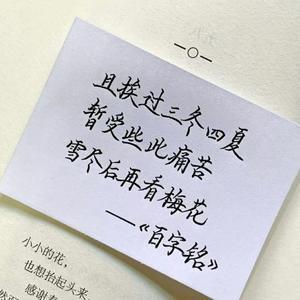 且挨过三冬四夏
暂受些此痛苦
雪尽后再看梅花
——《百字铭》
小小的花，
也想抬起头来，